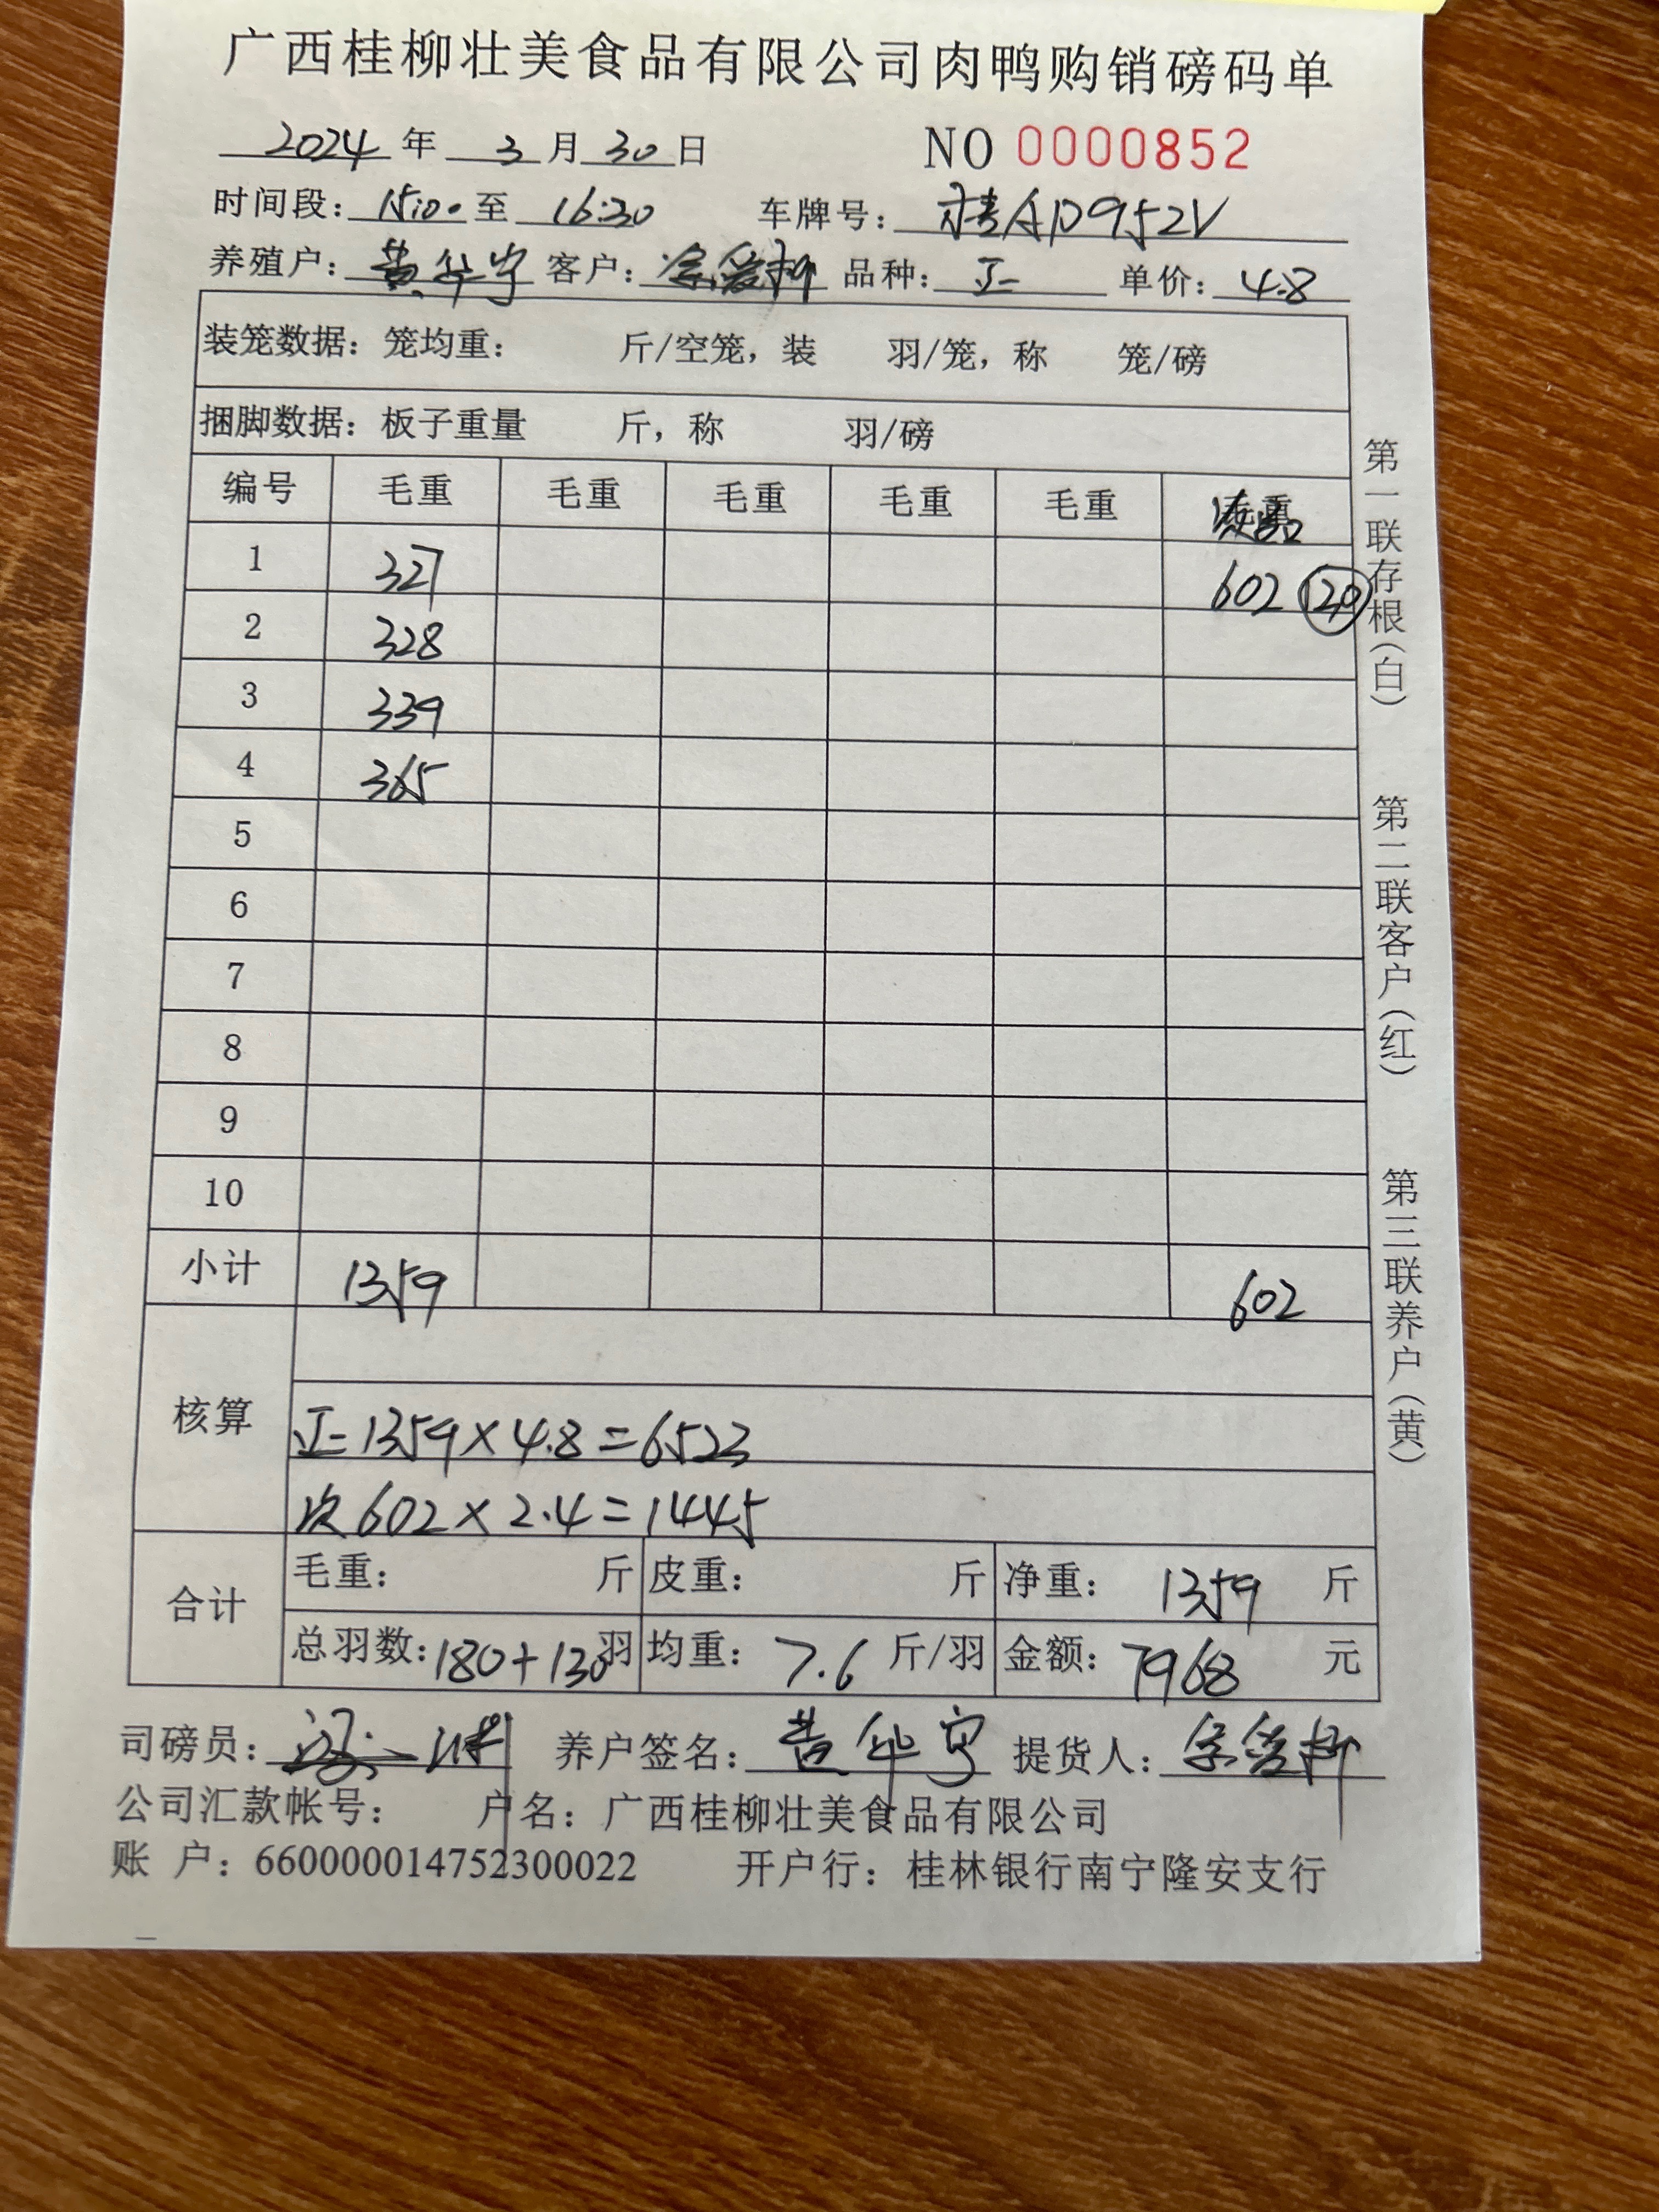 广西桂柳壮美食品有限公司肉鸭购销磅码单
2024年 3月30日 NO 0000852
时间段：15:00至 16:30 车牌号：桂AD952V
养殖户：黄华宁 客户： 品种：正 单价：4.8
装笼数据：笼均重： 斤/空笼，装 羽/笼，称 笼/磅
捆脚数据：板子重量 斤，称 羽/磅
编号 毛重 毛重 毛重 毛重 毛重
1 327 602
2 328
3 339
4 365
5
6
7
8
9
10
小计 1359 602
核算
正=1359×4.8=6523
次 602×2.4=1445
合计
毛重： 斤 皮重： 斤 净重：1359 斤
总羽数：180+130羽 均重：7.6 斤/羽 金额：7968 元
司磅员： 养户签名：黄华宁 提货人：
公司汇款帐号： 户名：广西桂柳壮美食品有限公司
账 户：660000014752300022 开户行：桂林银行南宁隆安支行
第一联存根（白）
第二联客户（红）
第三联养户（黄）